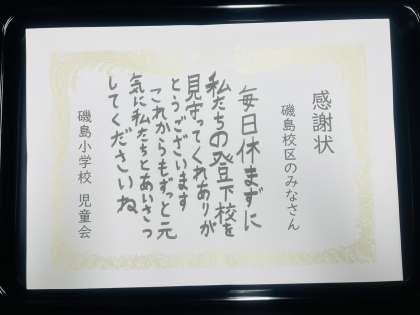 感謝状
磯島校区のみなさん
毎日休まずに
私たちの登下校を
見守ってくれありが
とうございます
これからもずっと元
気に私たちとあいさつ
してくださいね
磯島小学校 児童会